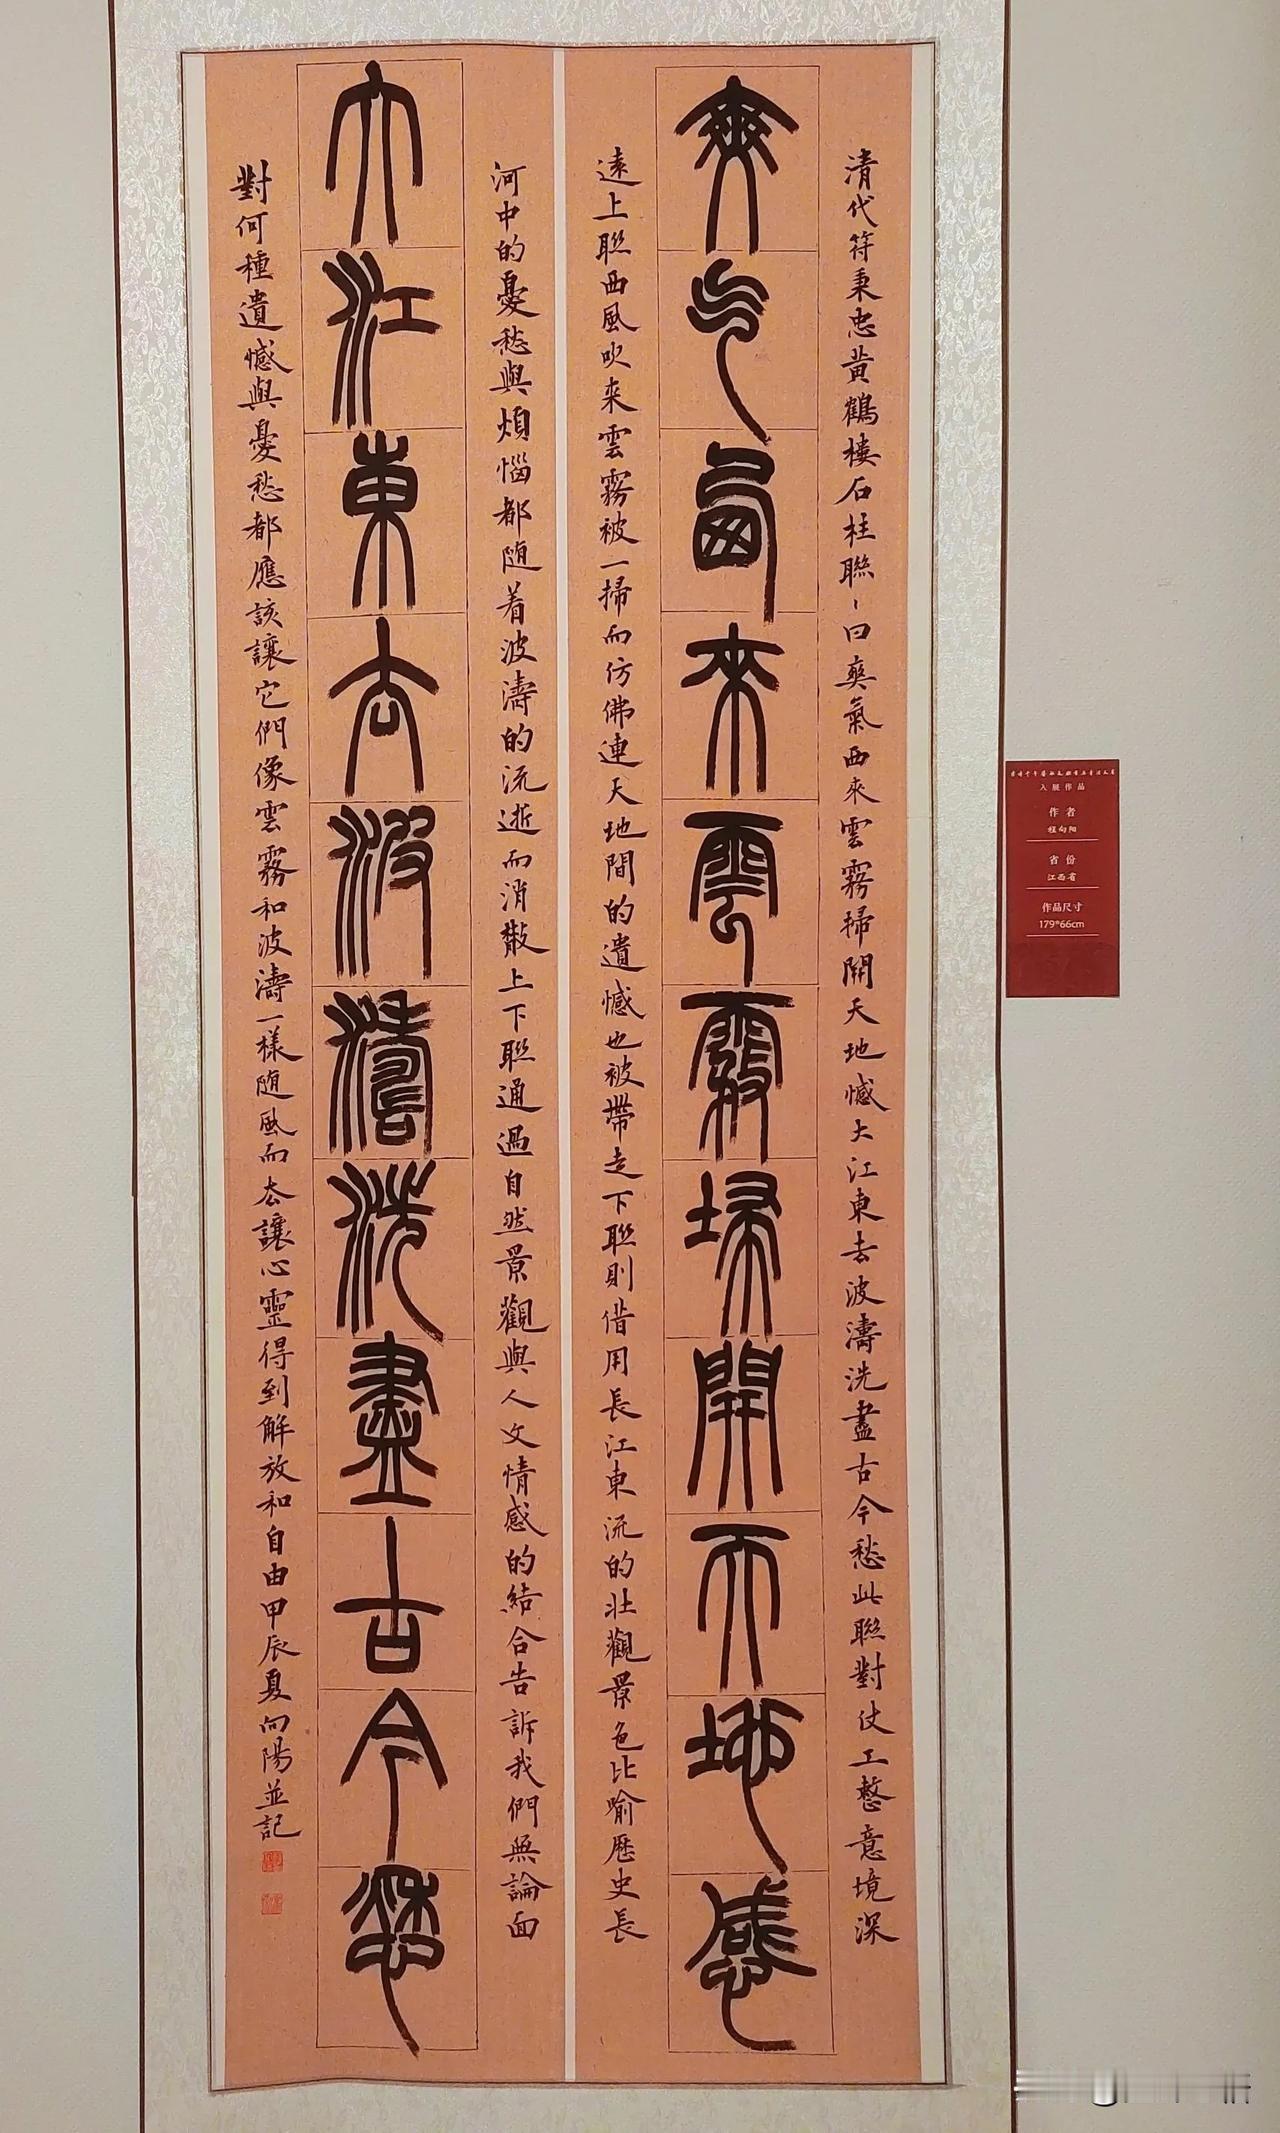 清代符秉忠黄鶴樓石柱聯丶曰爽氣西來雲霧掃開天地憾大江東去波濤洗盡古今愁此聯對仗工整意境深
爽气西來雲霧埽開天地感
遠上聯西風吹来雲霧被一掃而仿佛連天地間的遺憾也被帶走下聯則借用長江東流的壮觀景色比喻歷史長
河中的憂愁與煩惱都随着波濤的流逝而消散上下聯通過自然景觀與人文情感的結合告訴我們無論面
大江東去波濤洗盡古今愁
對何種遺憾與憂愁都應該讓它們像雲霧和波濤一樣随風而去讓心靈得到解放和自由甲辰夏向陽並記
入展作品
作者
程向阳
省份
江西省
作品尺寸
179*66cm